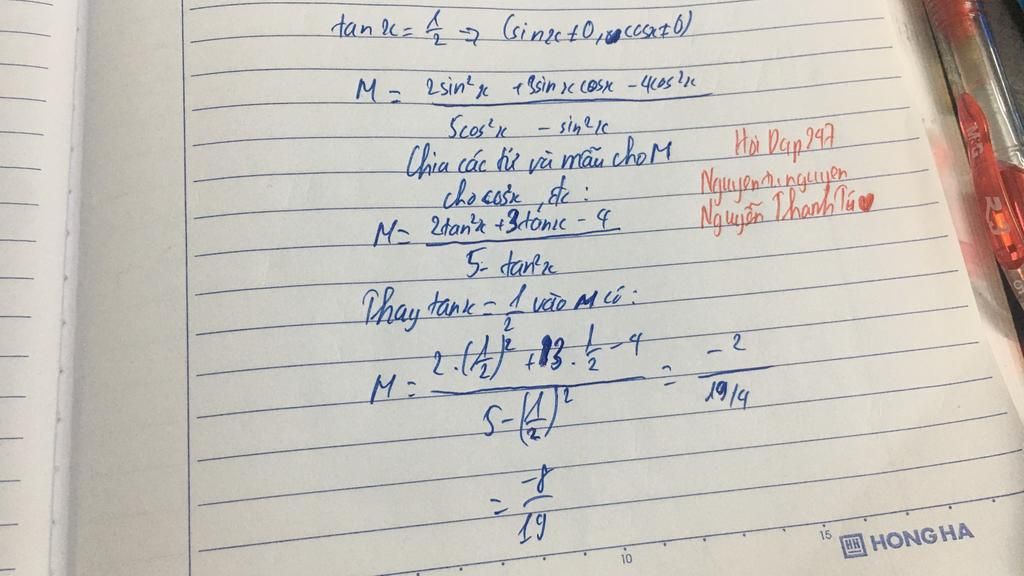 tanx = 1/2 => (sinx ≠ 0, cosx ≠ 0)
M = (2sin²x + 3sinxcosx - 4cos²x) / (5cos²x - sin²x)
Chia các tử và mẫu cho M
cho cos²x, đc :
M = (2tan²x + 3tanx - 4) / (5 - tan²x)
Thay tanx = 1/2 vào M có :
M = (2.(1/2)² + 3.1/2 - 4) / (5 - (1/2)²) = -2 / 19/4
= -8/19
Hỏi Dap 247
Nguyen
Nguyễn Thanh Tú
10
15
HH HONG HA